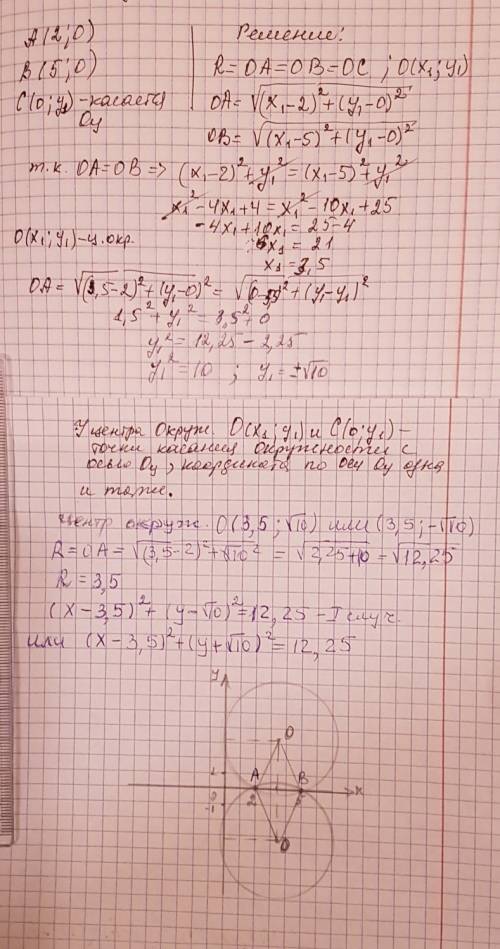 A(2;0)
B(5;0)
C(0;y₁)-касается
Oy
Решение:
R=OA=OB=OC ; O(x₁;y₁)
OA=√(x₁-2)²+(y₁-0)²
OB=√(x₁-5)²+(y₁-0)²
т.к. OA=OB => (x₁-2)²+y₁²=(x₁-5)²+y₁²
x₁²-4x₁+4=x₁²-10x₁+25
-4x₁+10x₁=25-4
6x₁=21
x₁=3,5
O(x₁;y₁)-ц.окр.
OA=√(3,5-2)²+(y₁-0)²=√(0-3,5)²+(y₁-y₁)²
1,5²+y₁²=3,5²+0
y₁²=12,25-2,25
y₁²=10 ; y₁=±√10
У центра окруж. O(x₁;y₁) и C(0;y₁)-
точки касания окружности с
осью Oy, координата по оси Oy одна
и та же.
центр окруж. O(3,5;√10) или (3,5;-√10)
R=OA=√(3,5-2)²+√10² = √2,25+10=√12,25
R=3,5
(x-3,5)²+(y-√10)²=12,25-I случ.
или (x-3,5)²+(y+√10)²=12,25
y
O
1
A
B
x
2
5
-1
O